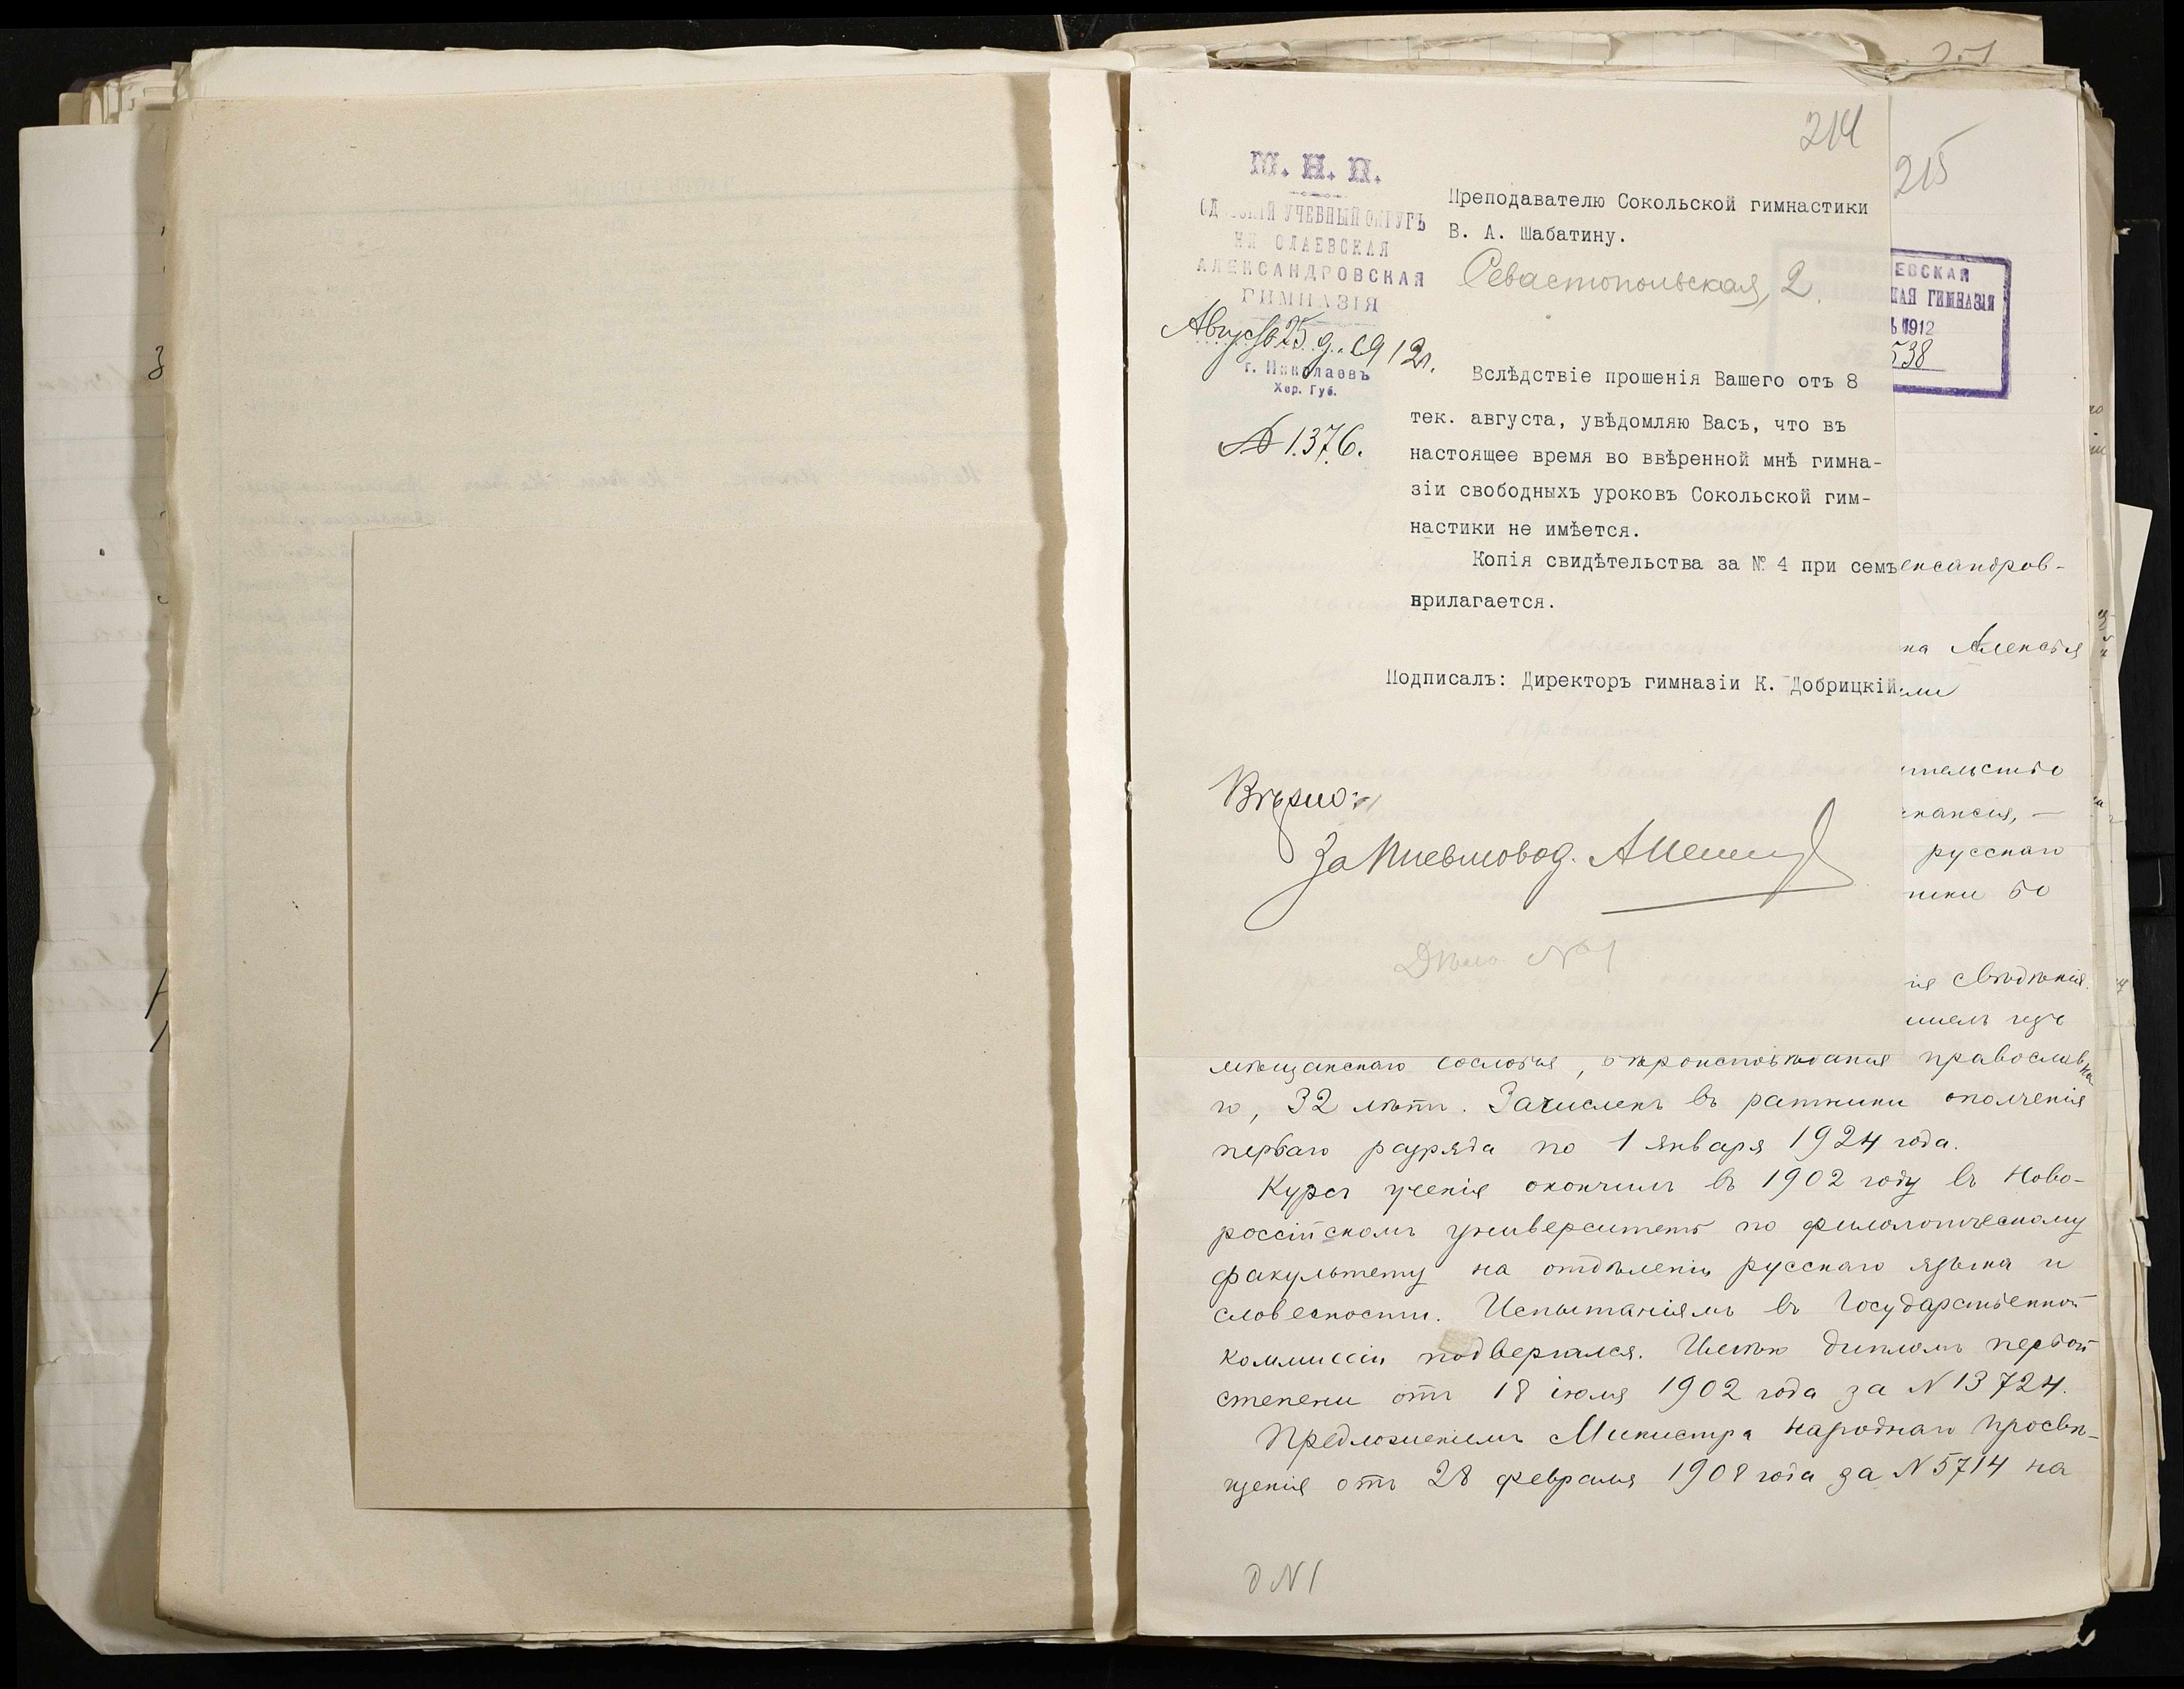 214
М. Н. П.
ОДЕССКІЙ УЧЕБНЫЙ ОКРУГЪ
НИКОЛАЕВСКАЯ
АЛЕКСАНДРОВСКАЯ
ГИМНАЗІЯ
Августа 25 д. 1912 г.
г. Николаевъ
Хер. Губ.
№ 1376.
Преподавателю Сокольской гимнастики
В. А. Шабатину.
Севастопольская, 2.
Вслѣдствіе прошенія Вашего отъ 8
тек. августа, увѣдомляю Васъ, что въ
настоящее время во ввѣренной мнѣ гимна-
зіи свободныхъ уроковъ Сокольской гим-
настики не имѣется.
Копія свидѣтельства за № 4 при семъ
прилагается.
Подписалъ: Директоръ гимназіи К. Добрицкій
Вѣрно:
За Письмовод.
Дѣло № 1
215
ЕВСКАЯ
КАЯ ГИМНАЗІЯ
1912
538
ександров-
на Алексѣя
ели
ительство
акансія, —
русскаго
ики во
ія свѣдѣнія.
мѣщанскаго сословія, вѣроисповѣданія православна
го, 32 лѣтъ. Зачисленъ въ ратники ополченія
перваго разряда по 1 января 1924 года.
Курсъ ученія окончилъ въ 1902 году въ Ново-
россійскомъ университетѣ по филологическому
факультету на отдѣленіи русскаго языка и
словесности. Испытаніямъ въ Государственной
коммиссіи подвергался. Имѣю дипломъ первой
степени отъ 18 іюля 1902 года за № 13724.
Предложеніемъ Министра Народнаго Просвѣ-
щенія отъ 28 февраля 1908 года за № 5714 на
д № 1